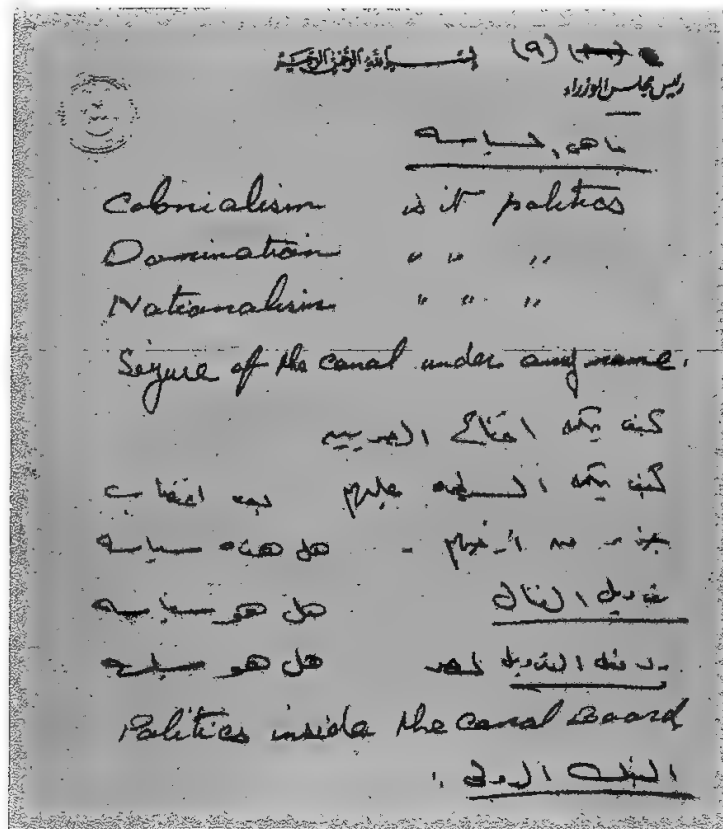 (٩)
بسم الله الرحمن الرحيم
رئيس مجلس الوزراء
ما هى السياسه
Colonialism is it politics
Domination " " "
Nationalism " " "
Seizure of the canal under any name.
كيف يمكن اقناع المصريين
كيف يمكن السيطره عليهم بعد اغتصاب
جزء من ارضهم - هل هذه سياسه
تدويل القنال هل هو سياسه
هل هو سياسه
Politics inside the canal Board
البنك الدولى .